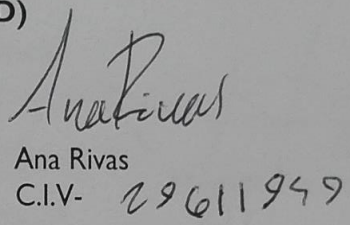 D)
Ana Rivas
Ana Rivas
C.I.V- 29611949